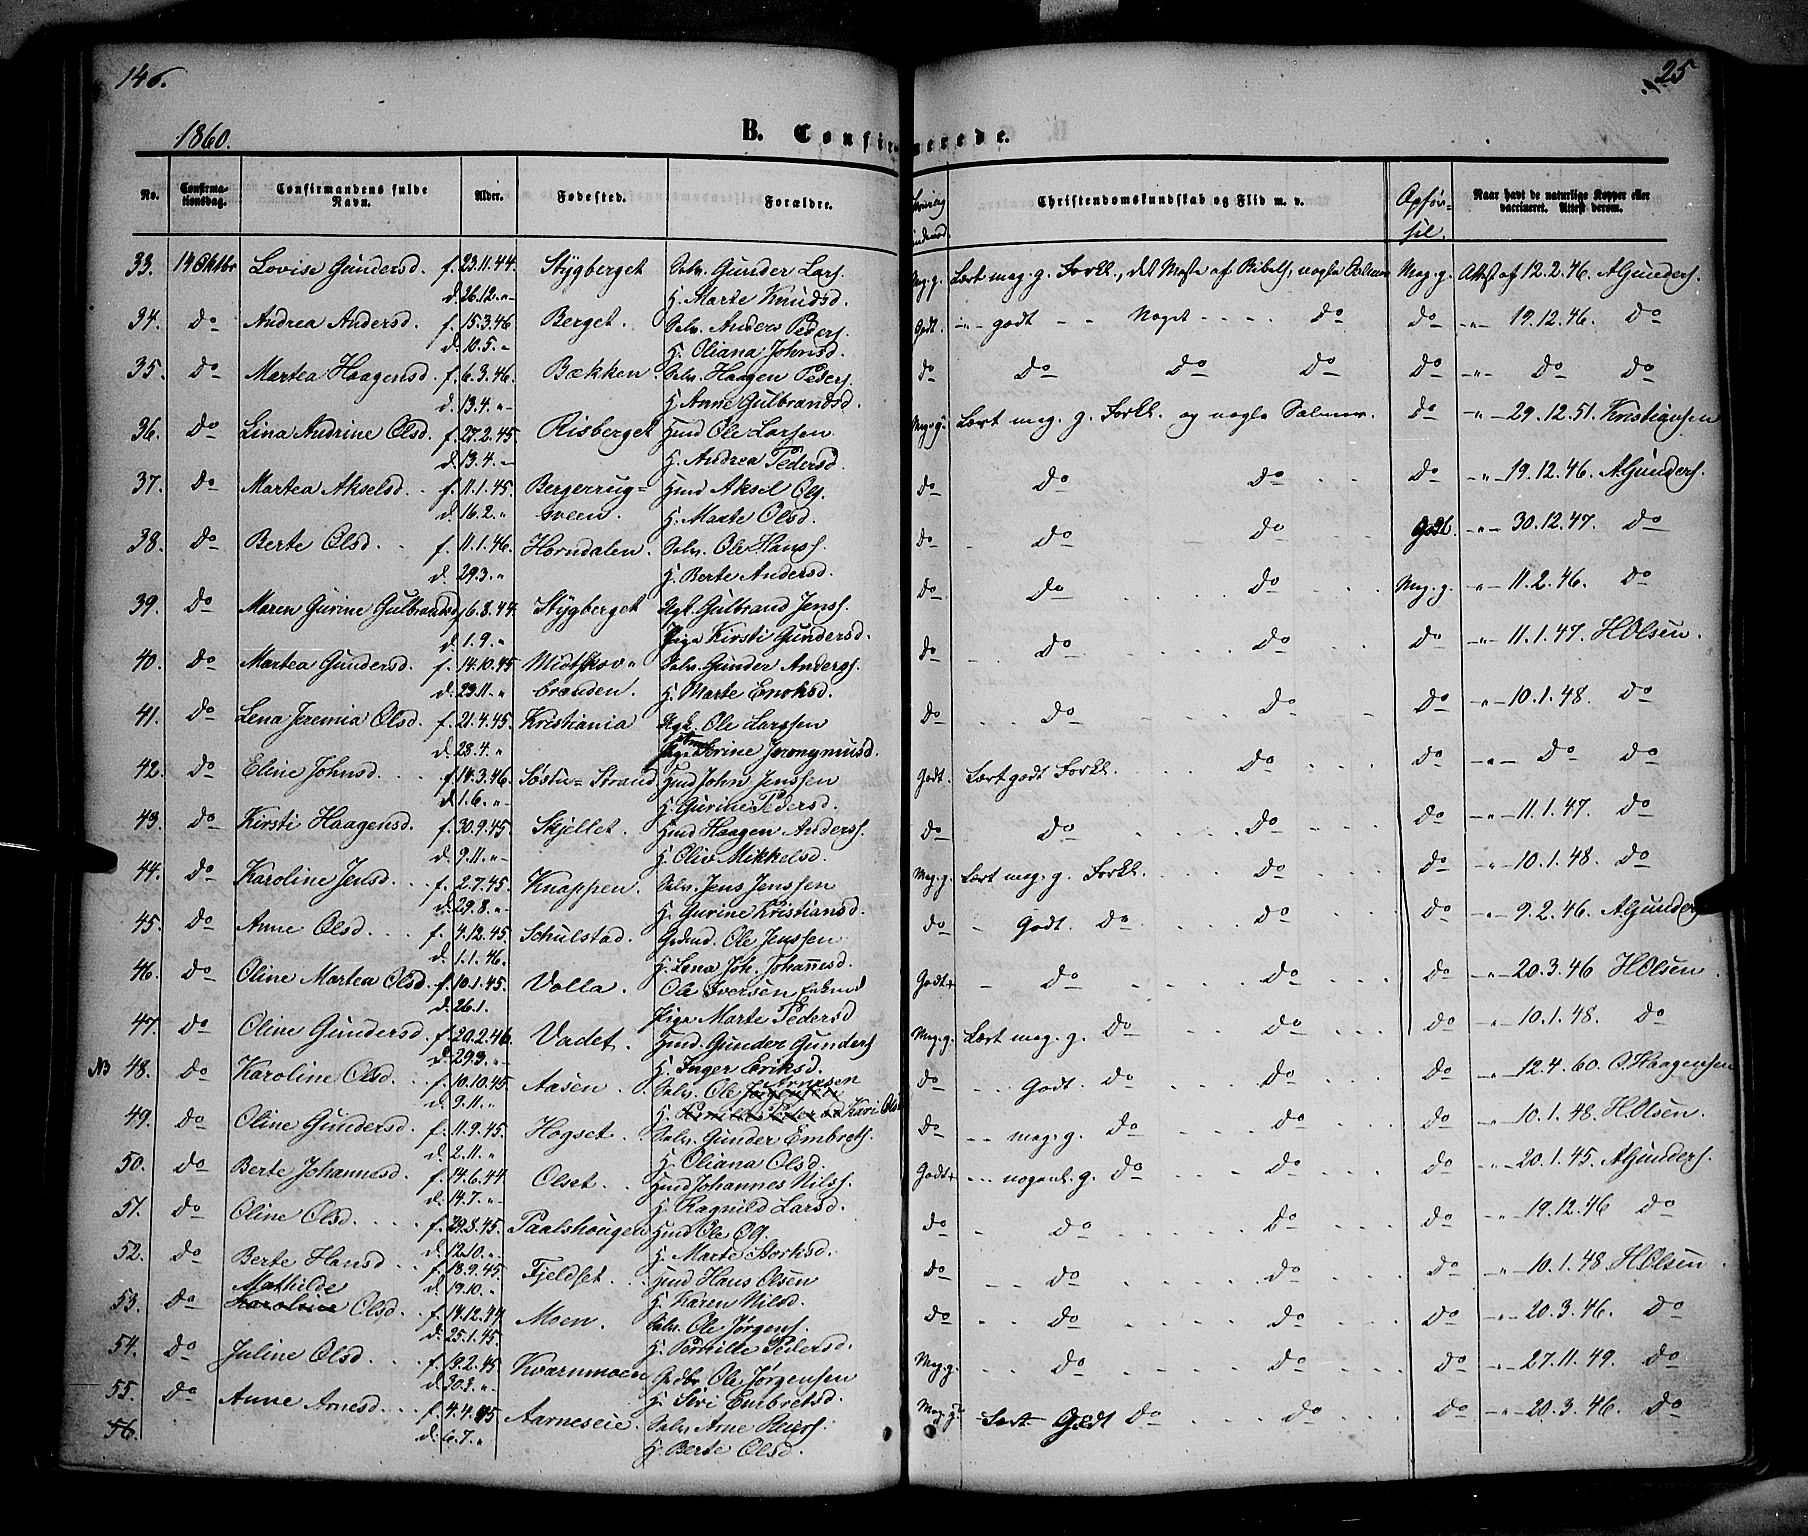 146.
25
1860.
B. Confirmerede.
No. Confirma-tionsdag. Confirmandens fulde Navn. Alder. Fødested. Forældre. Christendomskundskab og Flid m. v. Opför-sel. Naar havt de naturlige Kopper eller vaccineret. Attest derom.
33. 14 Oktbr Lovise Gundersd. f. 23.11.44. Stygberget Selv. Gunder Lars. Meg. g. Lært meg. g. Forkl., det Meste af Bibelh, nogle Salmer Meg. g. Attest af 12.2.46. AGunders.
d. 26.12. "- H. Marte Knudsd.
34. do Andrea Andersd. f. 15.3.46 Berget. Selv. Anders Peders. Godt. -"- godt - - Noget - - - - do do -"- 19.12.46. do
d. 10.5. " H. Oliana Johnsd.
35. do Martea Haagensd. f. 6.3.46. Bækken. Selv. Haagen Peders. do do do do do -"- do do
d. 13.4. "- H. Anne Gulbrandsd.
36. do Lina Andrine Olsd. f. 27.2.45 Risberget Hmd Ole Larsen Meg. g. Lært meg. g. Forkl. og nogle Salmer. do -"- 29.12.51. Kristiansen
d. 13.4. "- H. Andrea Pedersd.
37. do Martea Akselsd. f. 11.1.45. Bergerrug= Hmd Aksel Ols. do do do do -"- 19.12.46. AGunders.
d. 16.2. " sveen. H. Marte Olsd.
38. do Berte Olsd. f. 11.1.46. Horndalen. Selv. Ole Hans. do do do Godt. -"- 30.12.47. do
d. 29.3. " H. Berte Andersd.
39. do Maren Gurine Gulbrandsd f. 6.8.44. Stygberget Ugk. Gulbrand Jens. do do do Meg. g. -"- 11.2.46. do
d. 1.9. " Pige Kirsti Gundersd.
40. do Martea Gundersd. f. 14.10.45 Midtskov= Selv. Gunder Anders. do do do do -"- 11.1.47. HOlsen.
d. 23.11. " branden. H. Marte Enoksd.
41. do Lena Jeremia Olsd. f. 21.4.45. Kristiania Ugk. Ole Larssen do do do do -"- 10.1.48. do
d. 28.4. " Pige Serine Jeronymusd.
42. do Eline Johnsd. f. 14.3.46. Sostu=Strand Hmd John Jenssen Godt. Lært godt Forkl. do do -"- do do
d. 1.6. "- H. Gurine Pedersd.
43. do Kirsti Haagensd. f. 30.9.45. Skjellet. Hmd Haagen Anders. do do do do -"- 11.1.47. do
d. 9.11. "- H. Oliv Mikkelsd.
44. do Karoline Jensd. f. 2.7.45. Knappen. Selv. Jens Jenssen Meg. g. Lært meg. g. Forkl. do do -"- 10.1.48. do
d. 29.8. "- H. Gurine Kristiansd.
45. do Anne Olsd. f. 4.12.45. Schulstad. Grdmd. Ole Jenssen do - Godt. do do do -"- 9.2.46. AGunders
d. 1.1.46. H. Lena Joh. Johannesd.
46. do Oline Martea Olsd. f. 10.1.45. Volla. Ole Iversen Enkmd Godt+ - do do do -"- 20.3.46 HOlsen.
d. 26.1. Pige Marte Pedersd
47. do Oline Gundersd. f. 20.2.46. Vadet. Hmd. Gunder Gunders Meg. g. Lært meg. g. do do do -"- 10.1.48. do
d. 29.3. "- H. Inger Eriksd.
NB 48. do Karoline Olsd. f. 10.10.45. Aasen. Selv. Ole Jørgensen Arnesen do - - Godt. do do do -"- 12.4.60. O.Haagensen
d. 9.11. " H. Pernille Pedersd Kari Ols
49. do Oline Gundersd. f. 11.9.45. Hogset. Selv. Gunder Embrets. do - - meg. g. do do do -"- 10.1.48. HOlsen.
d. 2.11. " H. Oliana Olsd.
50. do Berte Johannesd. f. 14.6.44 Olset. Hmd Johannes Nils. Godt+ - - nogenl. g. do do do -"- 20.1.45. AGunders.
d. 14.7. "- H. Ragnild Larsd.
51. do Oline Olsd. f. 29.8.45. Paalshaugen Hmd Ole Ols. do - do do do -"- 19.12.46 do
d. 12.10. " H. Marte Storksd.
52. do Berte Hansd. f. 18.9.45. Fjeldset. Hmd Hans Olsen do do do do -"- 10.1.48. HOlsen.
d. 19.10. " H. Karen Nilsd.
Mathilde
53. do Karoline Olsd. f. 14.12.44 Moen. Selv. Ole Jørgens. do do do do -"- 20.3.46. do
d. 25.1.45. H. Pernille Pedersd.
54. do Juline Olsd. f. 19.2.45 Kvarnmoen Grdbr Ole Jørgensen Meg. g. do do do -"- 27.11.49. do
d. 30.3. "- H. Siri Embretsd.
55. do Anne Arnesd. f. 4.4.45 Aarneseie. Selv. Arne Peders. Meg. g. Lært Godt do do do -"- 20.3.46. do
56. d. 6.7. " H. Berte Olsd.